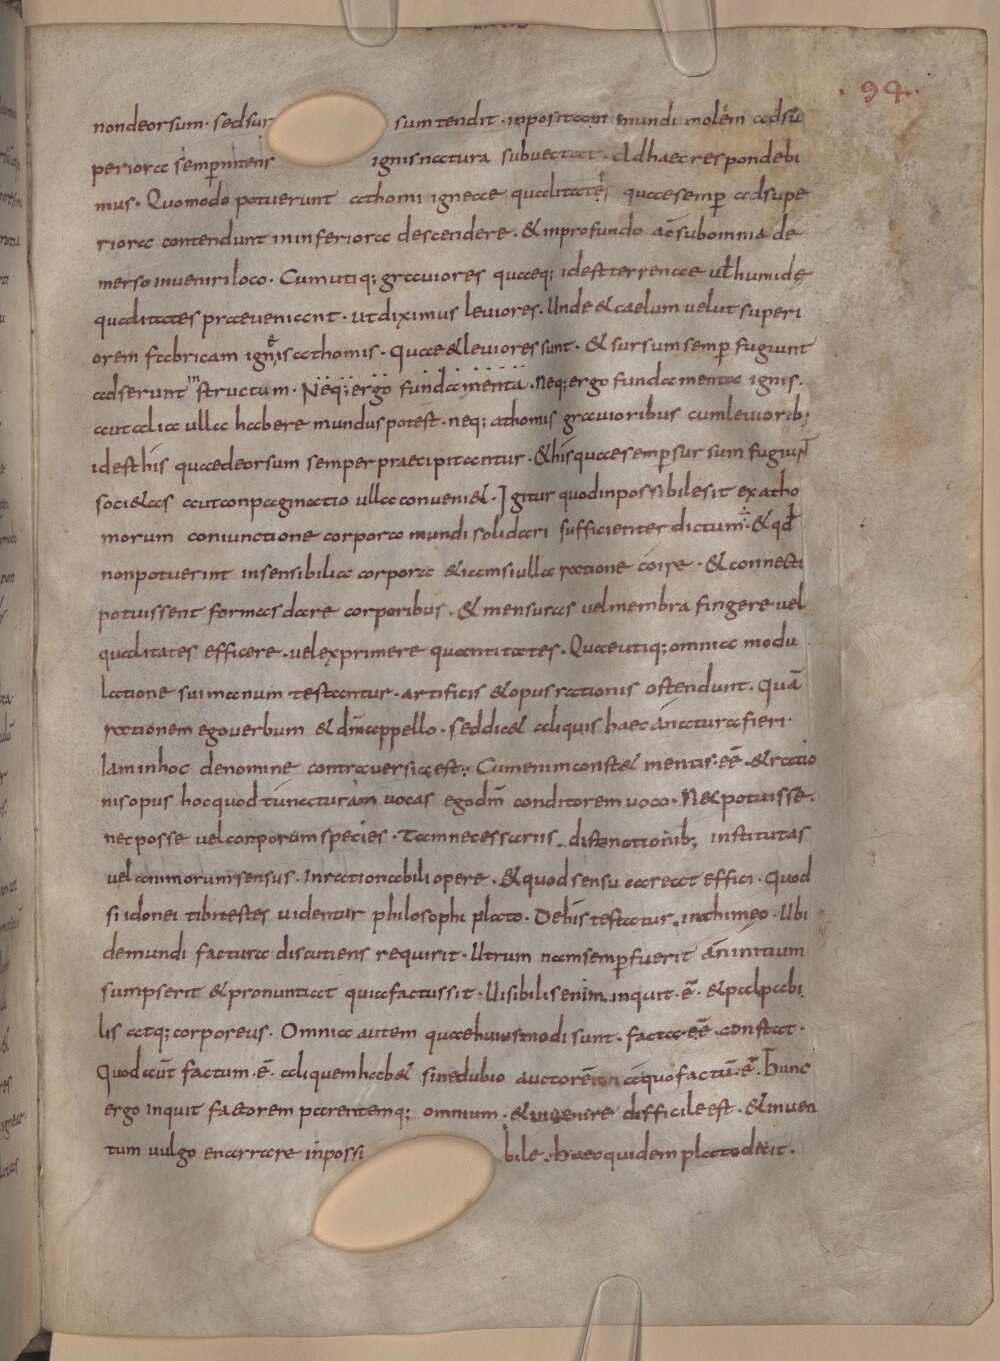 · 94 ·
nondeorsum · sedsur sumtendit · inpositam mundi molem adsu
periora semp̄nitens ignisnatura subuectat · Adhaecrespondebi
mus · Quomodo potuerunt athomi igneae qualitatis quaesemp̄ adsupe
riora contendunt ininferiora descendere · & inprofundo ac̄subomnia de
merso inveniriloco · Cumutiq; graviores quaeq; idestterrenae ul̄humidę
qualitates praeveniant · utdiximus leviores · Unde & caelum velut superi
orem fabricam igneis athomis · Quae & leviores sunt · & sursumsemp̄ fugiunt
adserunt instructum · Neq; ergo fundamenta · neq; ergo fundamenta ignis ·
aut alia ulla habere munduspotest · neq; athomis gravioribus cumleviorib;
idesthis quaedeorsum semperpraecipitantur · & hisquaesemp̄sursumfugiunt
soci&as autconpaginatio ulla conueni& · Igitur quodinpossibilesit exatho
morum coniunctione corpora mundi solidari sufficienter dictum · & qd̄
nonpotuerint insensibilia corpora & iamsiulla ratione coire · & connecti
potuissent formasdare corporibus · & mensuras velmembra fingere vel
qualitates efficere · velexprimere quantitates · Quaeutiq; omnia modu
latione suimanum testantur · artificis & opusrationis ostendunt · Quā
rationem egoverbum & dm̄appello · seddic& aliquis haec anaturafieri ·
Iaminhoc denomine controversiaest · Cumenimconst& mentis · eē · & ratio
nisopus hocquodtunaturam uocas egodm̄ conditoremuoco · N& potuisse ·
necposse velcorporumspecies · Tamnecessariis distinctionib; institutas
vel animorumsensus · Inrationabiliopere · & quodsensu careat effici · Quod
siidonei tibitestes videntur philosophi plato · Dehistestatur · inthimeo · Ubi
demundi factura discutiens requirit · Utrum namsemp̄fuerit an̄initium
sumpserit & pronuntiat quiafactussit · Uisibilisenim inquit · ē · & palpabi
lis atq; corporeus · Omnia autem quaehuiusmodi sunt · facta eē · constat ·
Quodaūt factum · ē · aliquemhab& sinedubio auctorem aquofactū · ē · Hunc
ergo inquit factorem parentemq; omnium · & invenire difficileest · & inuen
tum uulgo enarrare inpossi bile · haecquidem platodicit ·